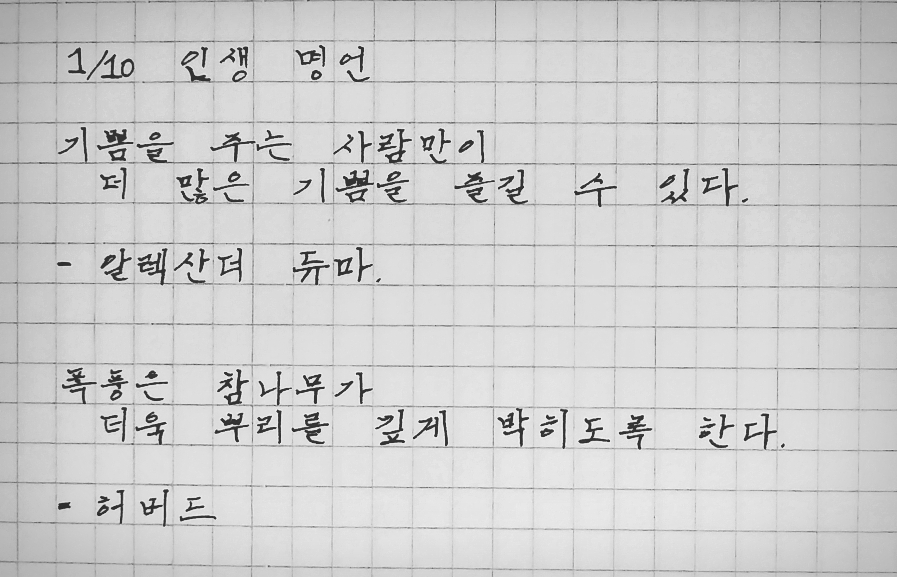 1/10 인생 명언
기쁨을 주는 사람만이
더 많은 기쁨을 즐길 수 있다.
- 알렉산더 듀마.
폭풍은 참나무가
더욱 뿌리를 깊게 박히도록 한다.
- 허버드